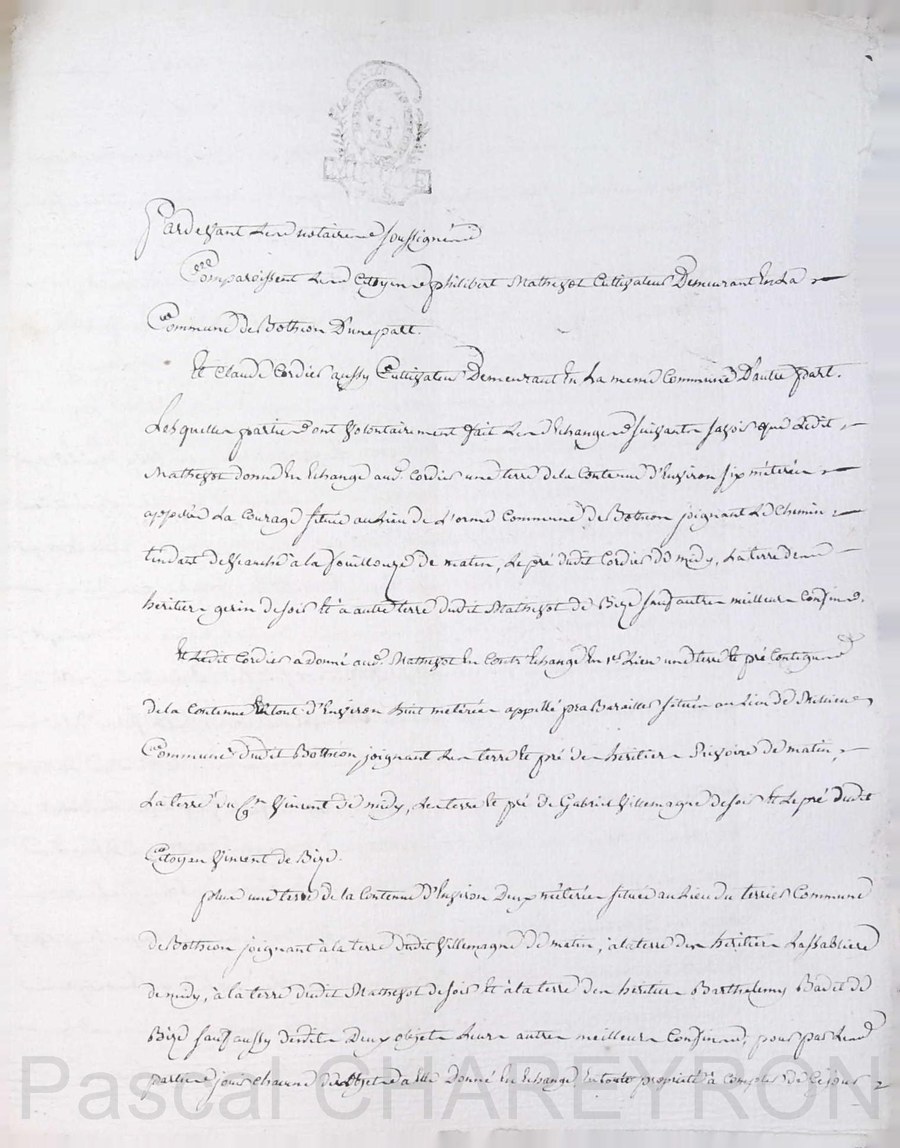 Pardevant les notaires soussignés
Comparoissent les Citoyens philibert Mathevot Cultivateur Demeurant En La
Commune de Bothéon D'une part.
Et Claude Cordier aussy Cultivateur Demeurant En La meme Commune D'autre part.
Lesquelles parties ont Volontairement fait Les Echanges suivants savoir que Ledit
Mathevot donne En Echange aud. Cordier une terre de la Contenue d'Environ six métérées
appelée La Courage située au Lieu de L'orme Commune de Bothéon joignant Le Chemin
tendant de à la fouillouze de matin, Le pré dudit Cordier de midy, La terre des
héritiers gerin de soir Et à autre terre dudit Mathevot de Bize sauf autres meilleurs Confins.
Et Ledit Cordier a donné aud. Mathevot En Contr'Echange En 1er Lieu une terre Et pré Contigus
de la Contenue En tout d'Environ huit métérées appellé pra Barailles située au Lieu de
Commune dudit Bothéon, joignant Les terre Et pré des héritiers de matin,
La terre du Cen Vincent de midy, Les terre Et pré de Gabriel Villemagne de soir Et Le pré dudit
Citoyen Vincent de Bize.
plus une terre de la Contenue d'Environ Deux métérées située au Lieu du terrier Commune
de Bothéon joignant à la terre dudit Villemagne de matin, à la terre des héritiers Lassablière
de midy, à la terre dudit Mathevot de soir Et à la terre des héritiers Barthelemy Badet de
Bize sauf aussy desdits Deux objets Leurs autres meilleurs Confins, pour par Lesd
parties jouir Chacune de l'objet a Elle Donné En Echange En toute propriété à Compter de Ce jour
Pascal CHAREYRON